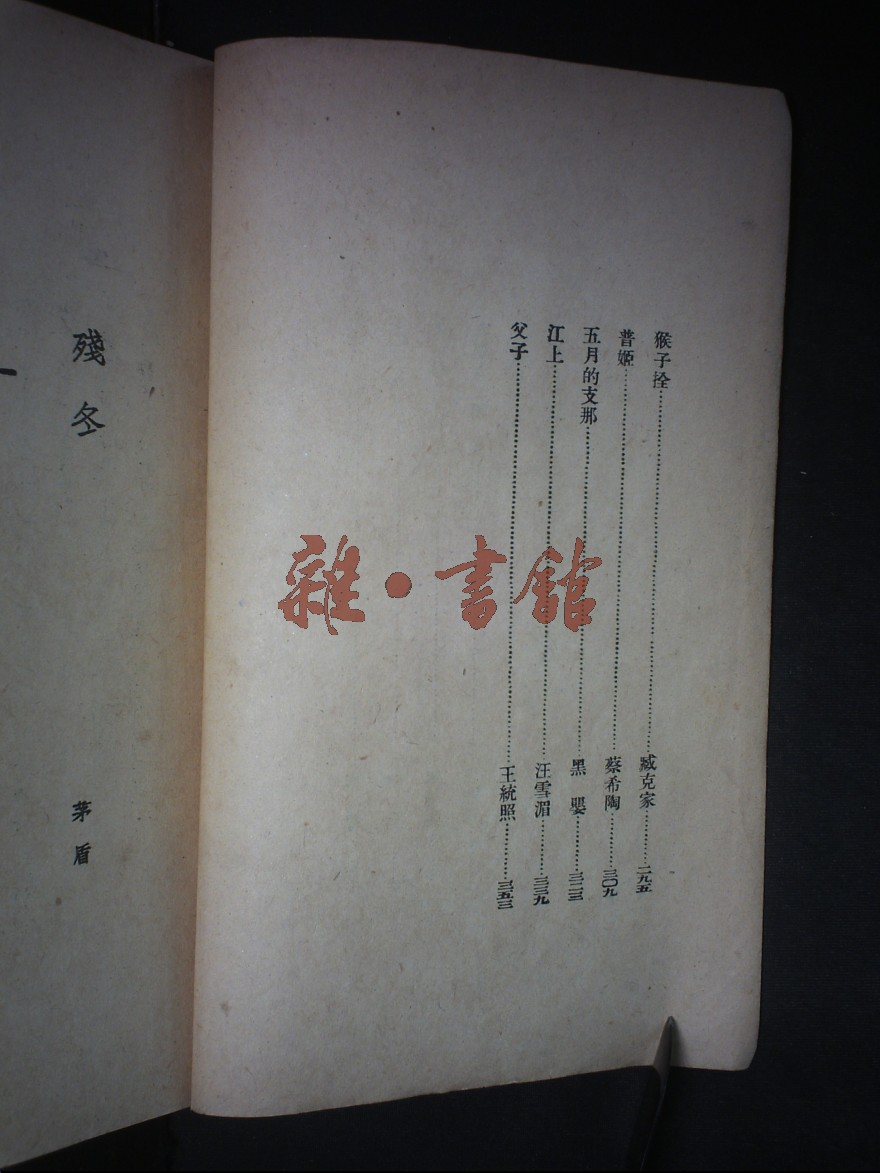 猴子拴……臧克家……二九五
普姬……蔡希陶……三〇九
五月的支那……黑 嬰……三二三
江上……汪雪湄……三三九
父子……王統照……三五三
殘冬
茅盾
雜·書館